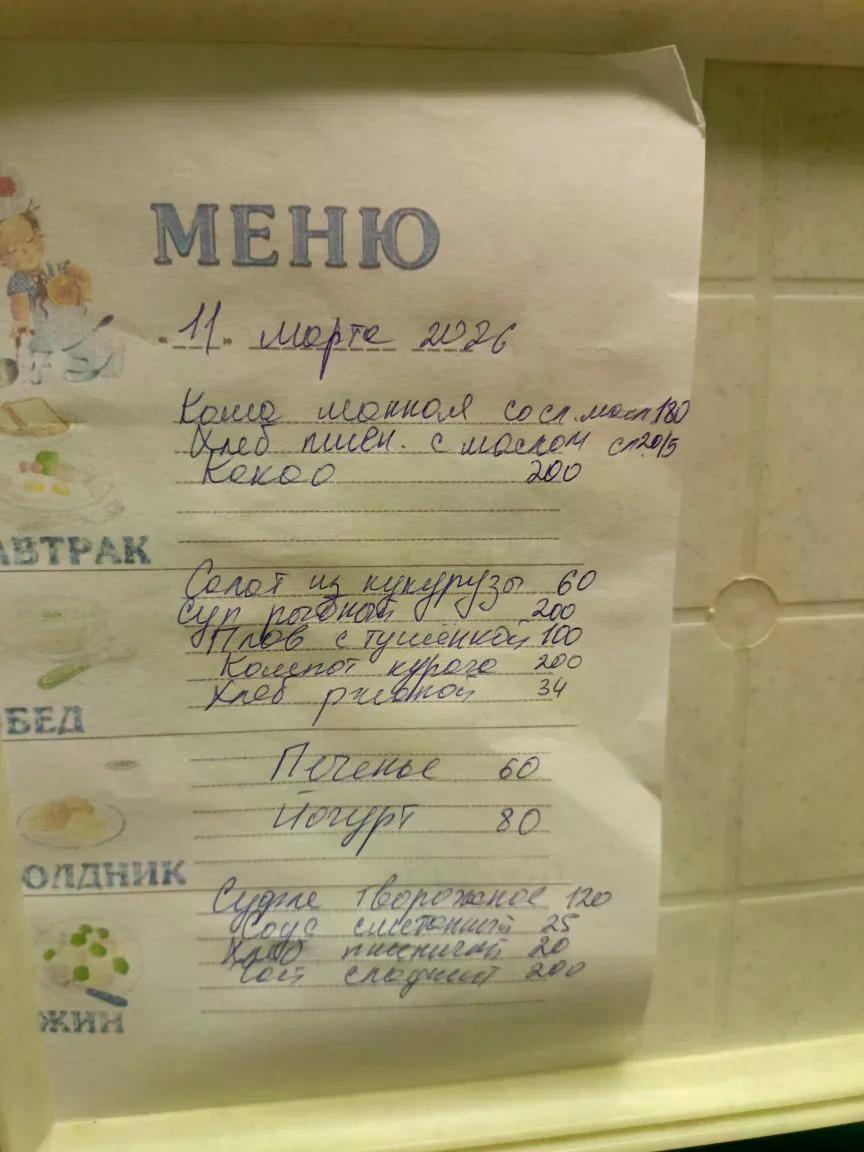 МЕНЮ
"11" марта 2026
Каша манная со сл.масл 180
Хлеб пшен. с маслом сл 20/5
Какао 200
АВТРАК
Салат из кукурузы 60
Суп рыбный 200
Плов с тушёнкой 100
Компот курага 200
Хлеб ржаной 34
БЕД
Печенье 60
Йогурт 80
ОЛДНИК
Суфле творожное 120
Соус сметанный 25
Хлеб пшеничный 20
Чай сладкий 200
ЖИН